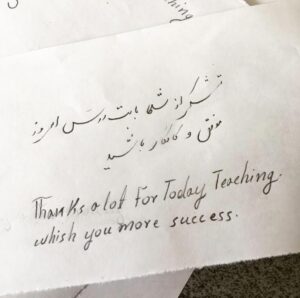 thing
تشکر از شما بابت درس امروز
موفق و کامکار باشید
Thanks a lot For Today Teaching.
whish you more success.